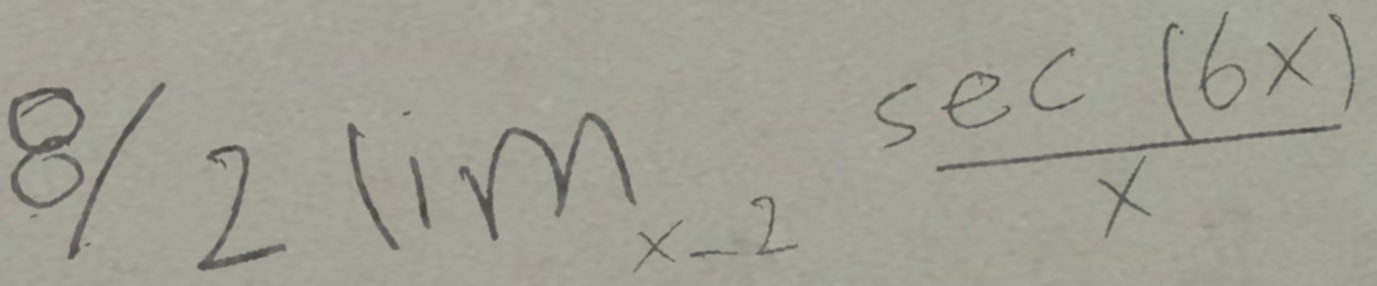 8/2 lim x-2 sec (6x) / x